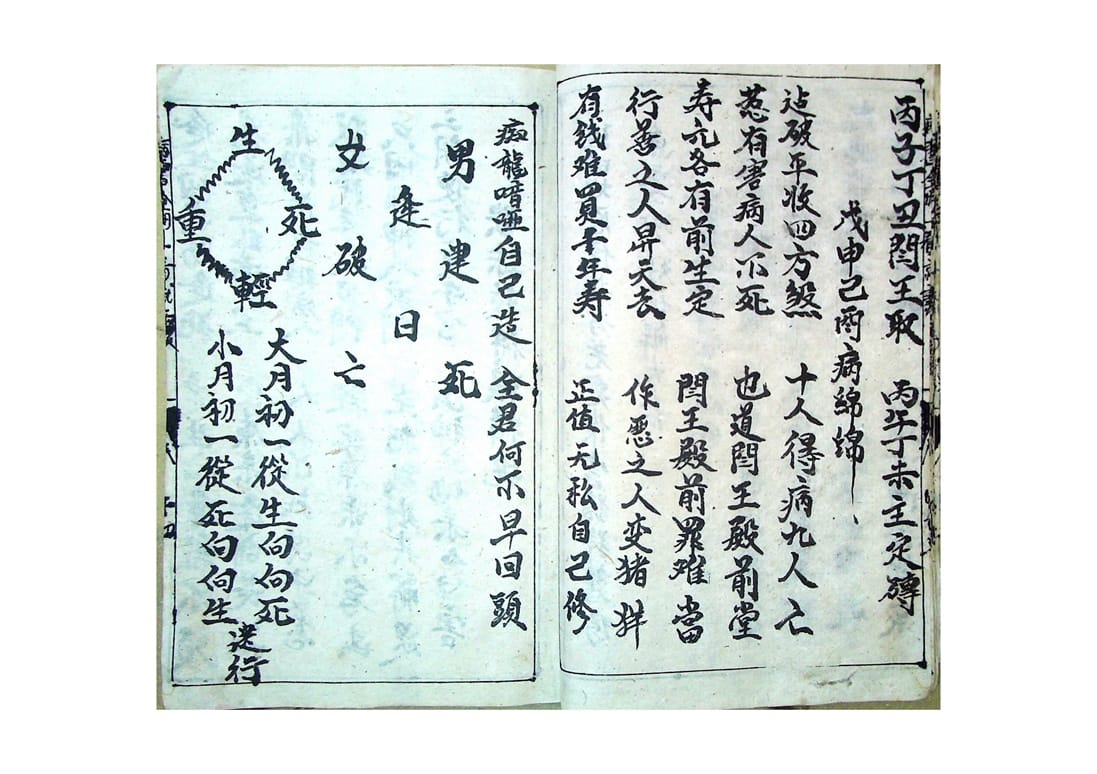 丙子丁丑閆王取 丙午丁未主定磚
戊申己酉病綿綿
迠破平收四方煞 十人得病九人亡
惹有害病人不死 也道閆王殿前堂
寿元各有前生定 閆王殿前罪难當
行善之人昇天去 作恶之人变猪牂
有钱难買千年寿 正值无私自己修
痴龍喑哑自己造 全君何不早回頭
男建死
逢日
女破亡
生
死
重
輕
大月初一從生向向死
小月初一從死向向生
逆行